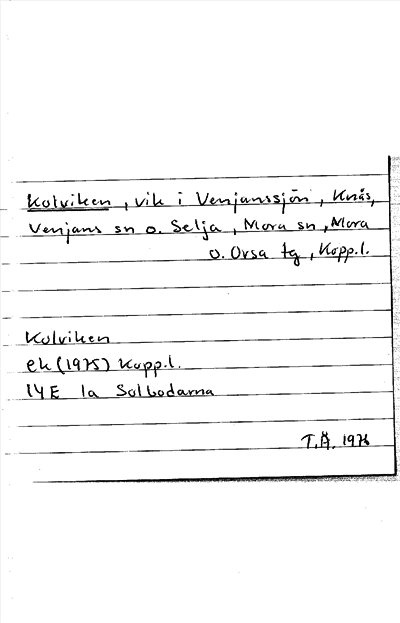 Kolviken, vik i Venjanssjön, Knås,
Venjans sn o. Selja, Mora sn, Mora
o. Orsa tg, Kopp.l.
Kolviken
ek (1975) Kopp.l.
14E 1a Solbodarna
T.Ä. 1976